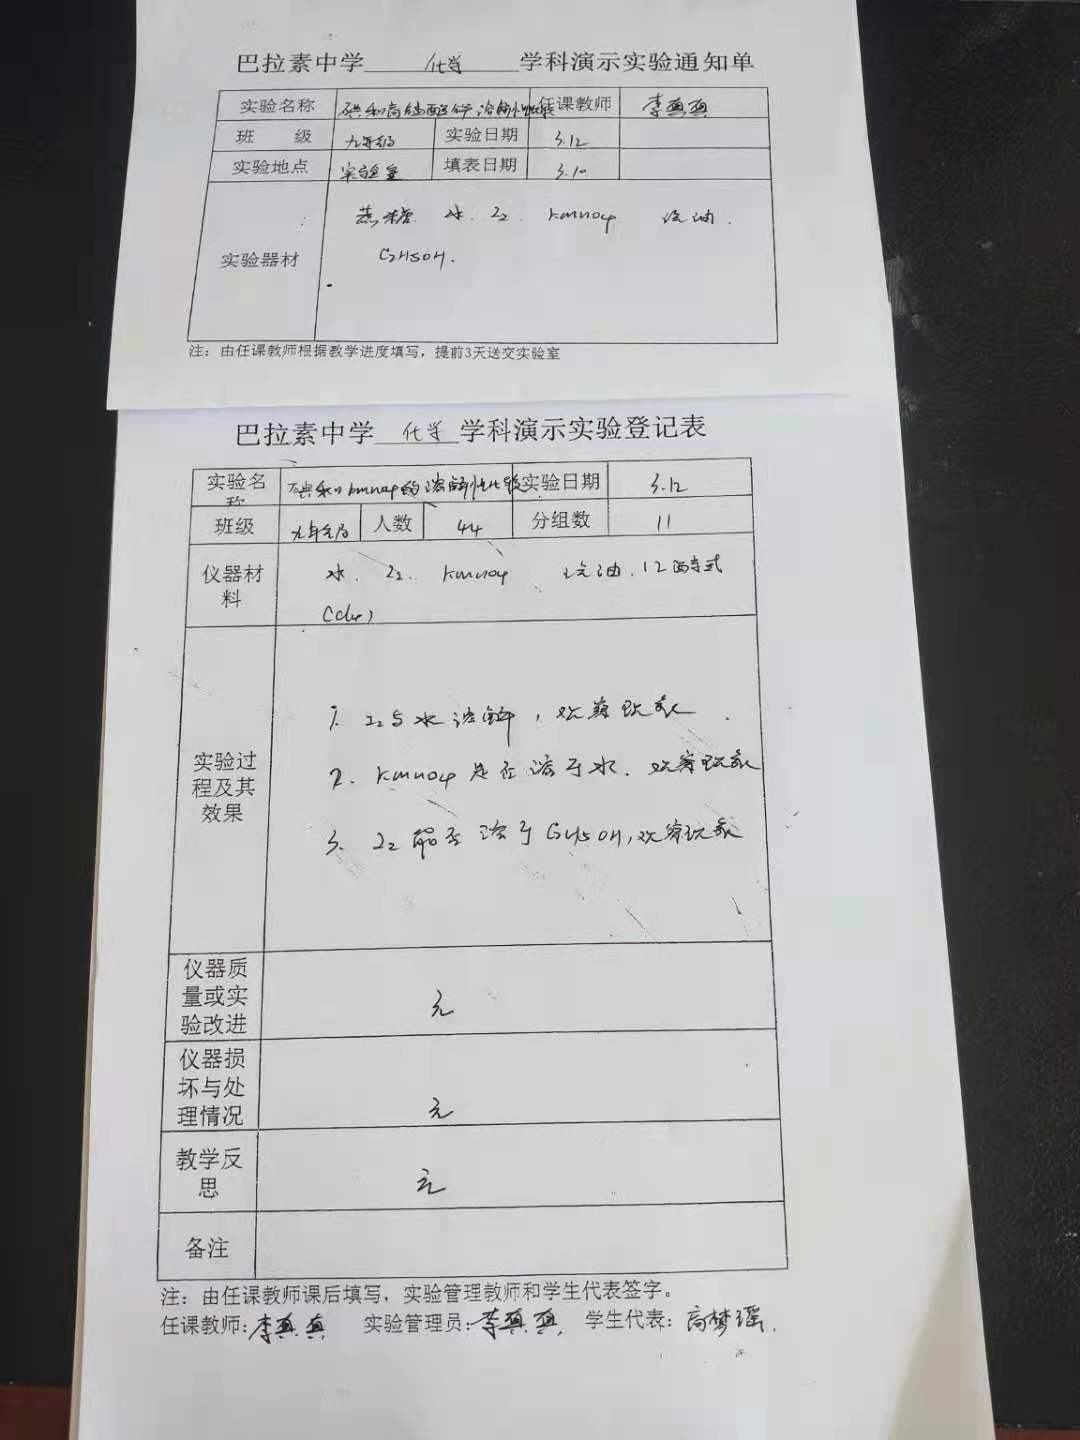 巴拉素中学 化学 学科演示实验通知单
实验名称 碘和高锰酸钾溶解性比较 任课教师 李真真
班 级 九年级 实验日期 3.12
实验地点 实验室 填表日期 3.10
实验器材 蔗糖 水. I2 KmnO4 汽油.
C2H5OH.
注：由任课教师根据教学进度填写，提前3天送交实验室
巴拉素中学 化学 学科演示实验登记表
实验名称 碘和KmnO4的溶解性比较 实验日期 3.12
班级 人数 44 分组数 11
仪器材料 水. I2. KmnO4 汽油.
实验过程及其效果
1. I2与水溶解，观察现象.
2. KmnO4是否溶于水. 观察现象
3. I2能否溶于C2H5OH, 观察现象
仪器质量或实验改进 无
仪器损坏与处理情况 无
教学反思 无
备注
注：由任课教师课后填写，实验管理教师和学生代表签字。
任课教师: 李真真 实验管理员: 李真真. 学生代表: 高梦瑶.